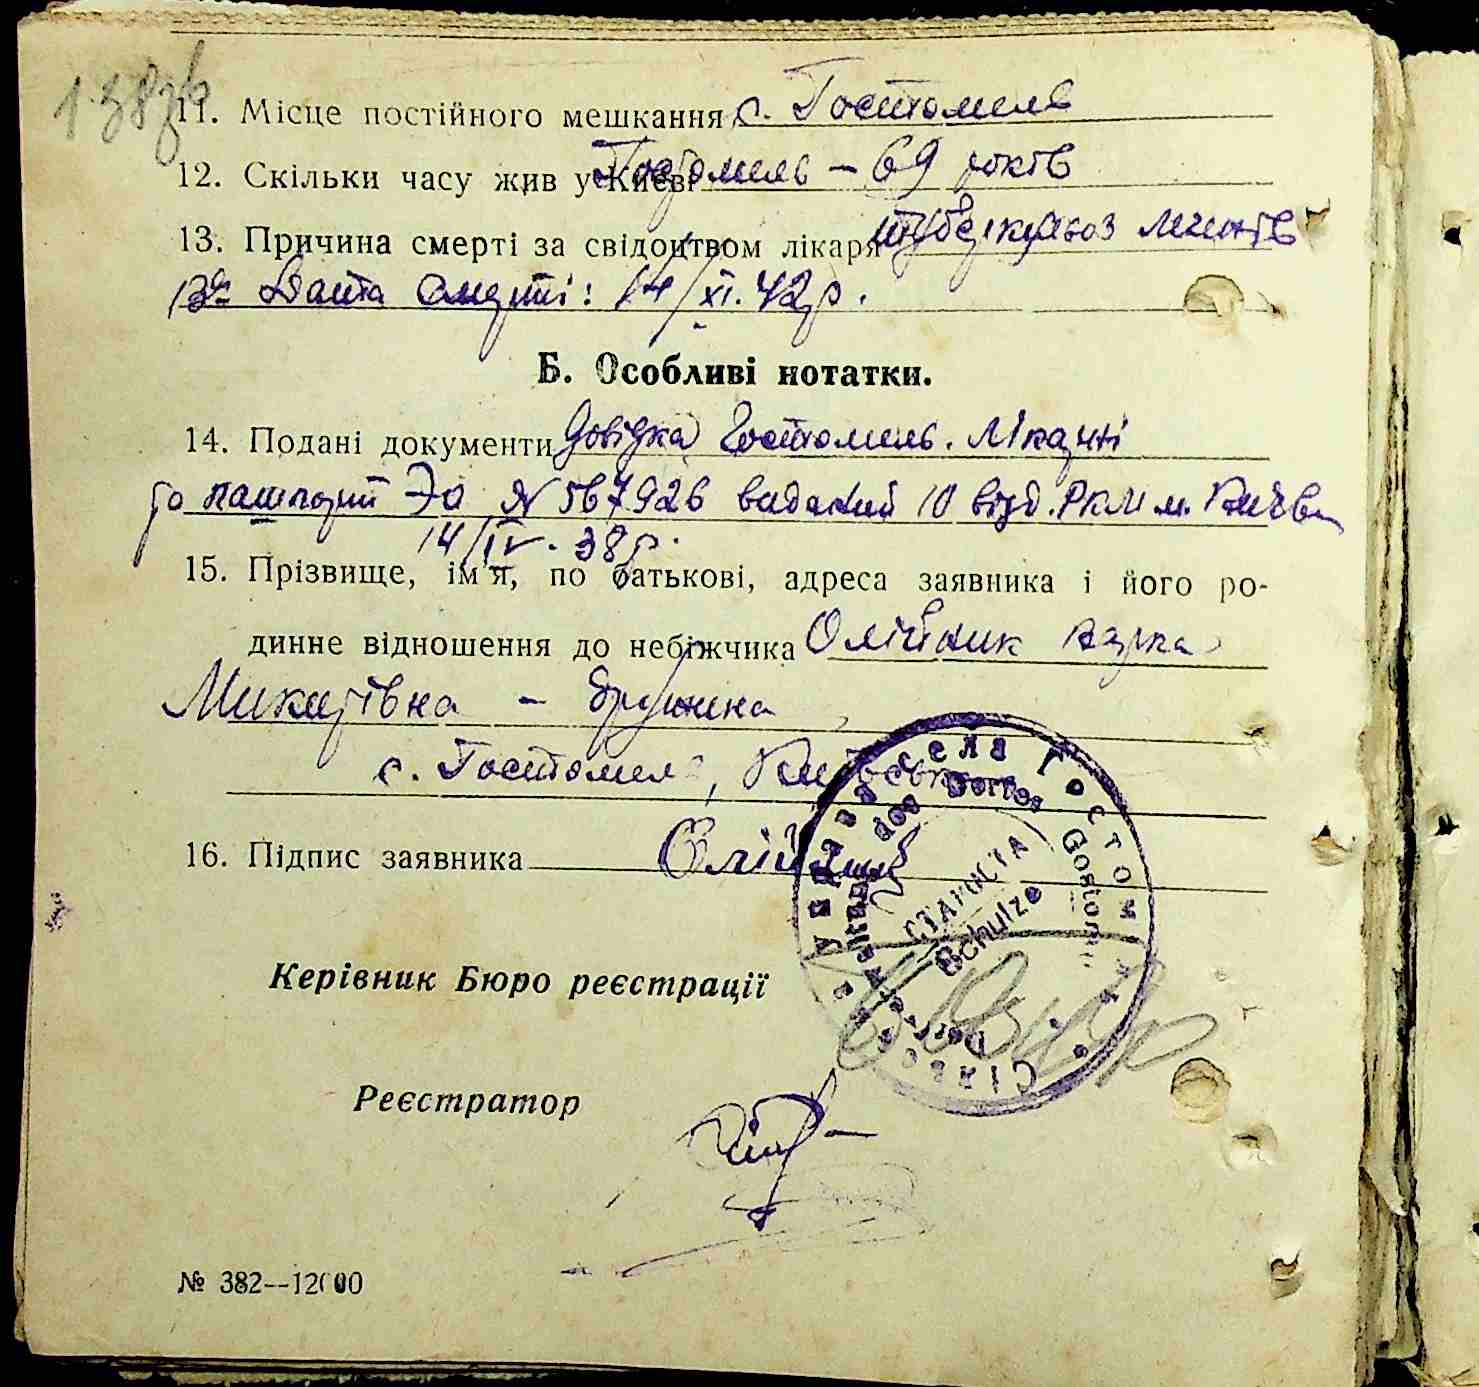 138зв
11. Місце постійного мешкання с. Гостомель
12. Скільки часу жив у Києві Гостомель – 69 років
13. Причина смерті за свідоцтвом лікаря туберкульоз легенів
Дата смерті: 14/XI.42р.
Б. Особливі нотатки.
14. Подані документи Довідка Гостомель. лікарні
та пашпорт ЭО № 567926 виданий 10 відд. РКМ м. Києва
14/IV. 38р.
15. Прізвище, ім'я, по батькові, адреса заявника і його ро-
динне відношення до небіжчика Олійник Варка
Микитівна – дружина
с. Гостомель, Київськ
16. Підпис заявника Олійник
Сільська управа села Гостомля
Dorfverwaltung des Dorfes Gostoml
СТАРОСТА
Schulze
Керівник Бюро реєстрації
Реєстратор
№ 382--12000